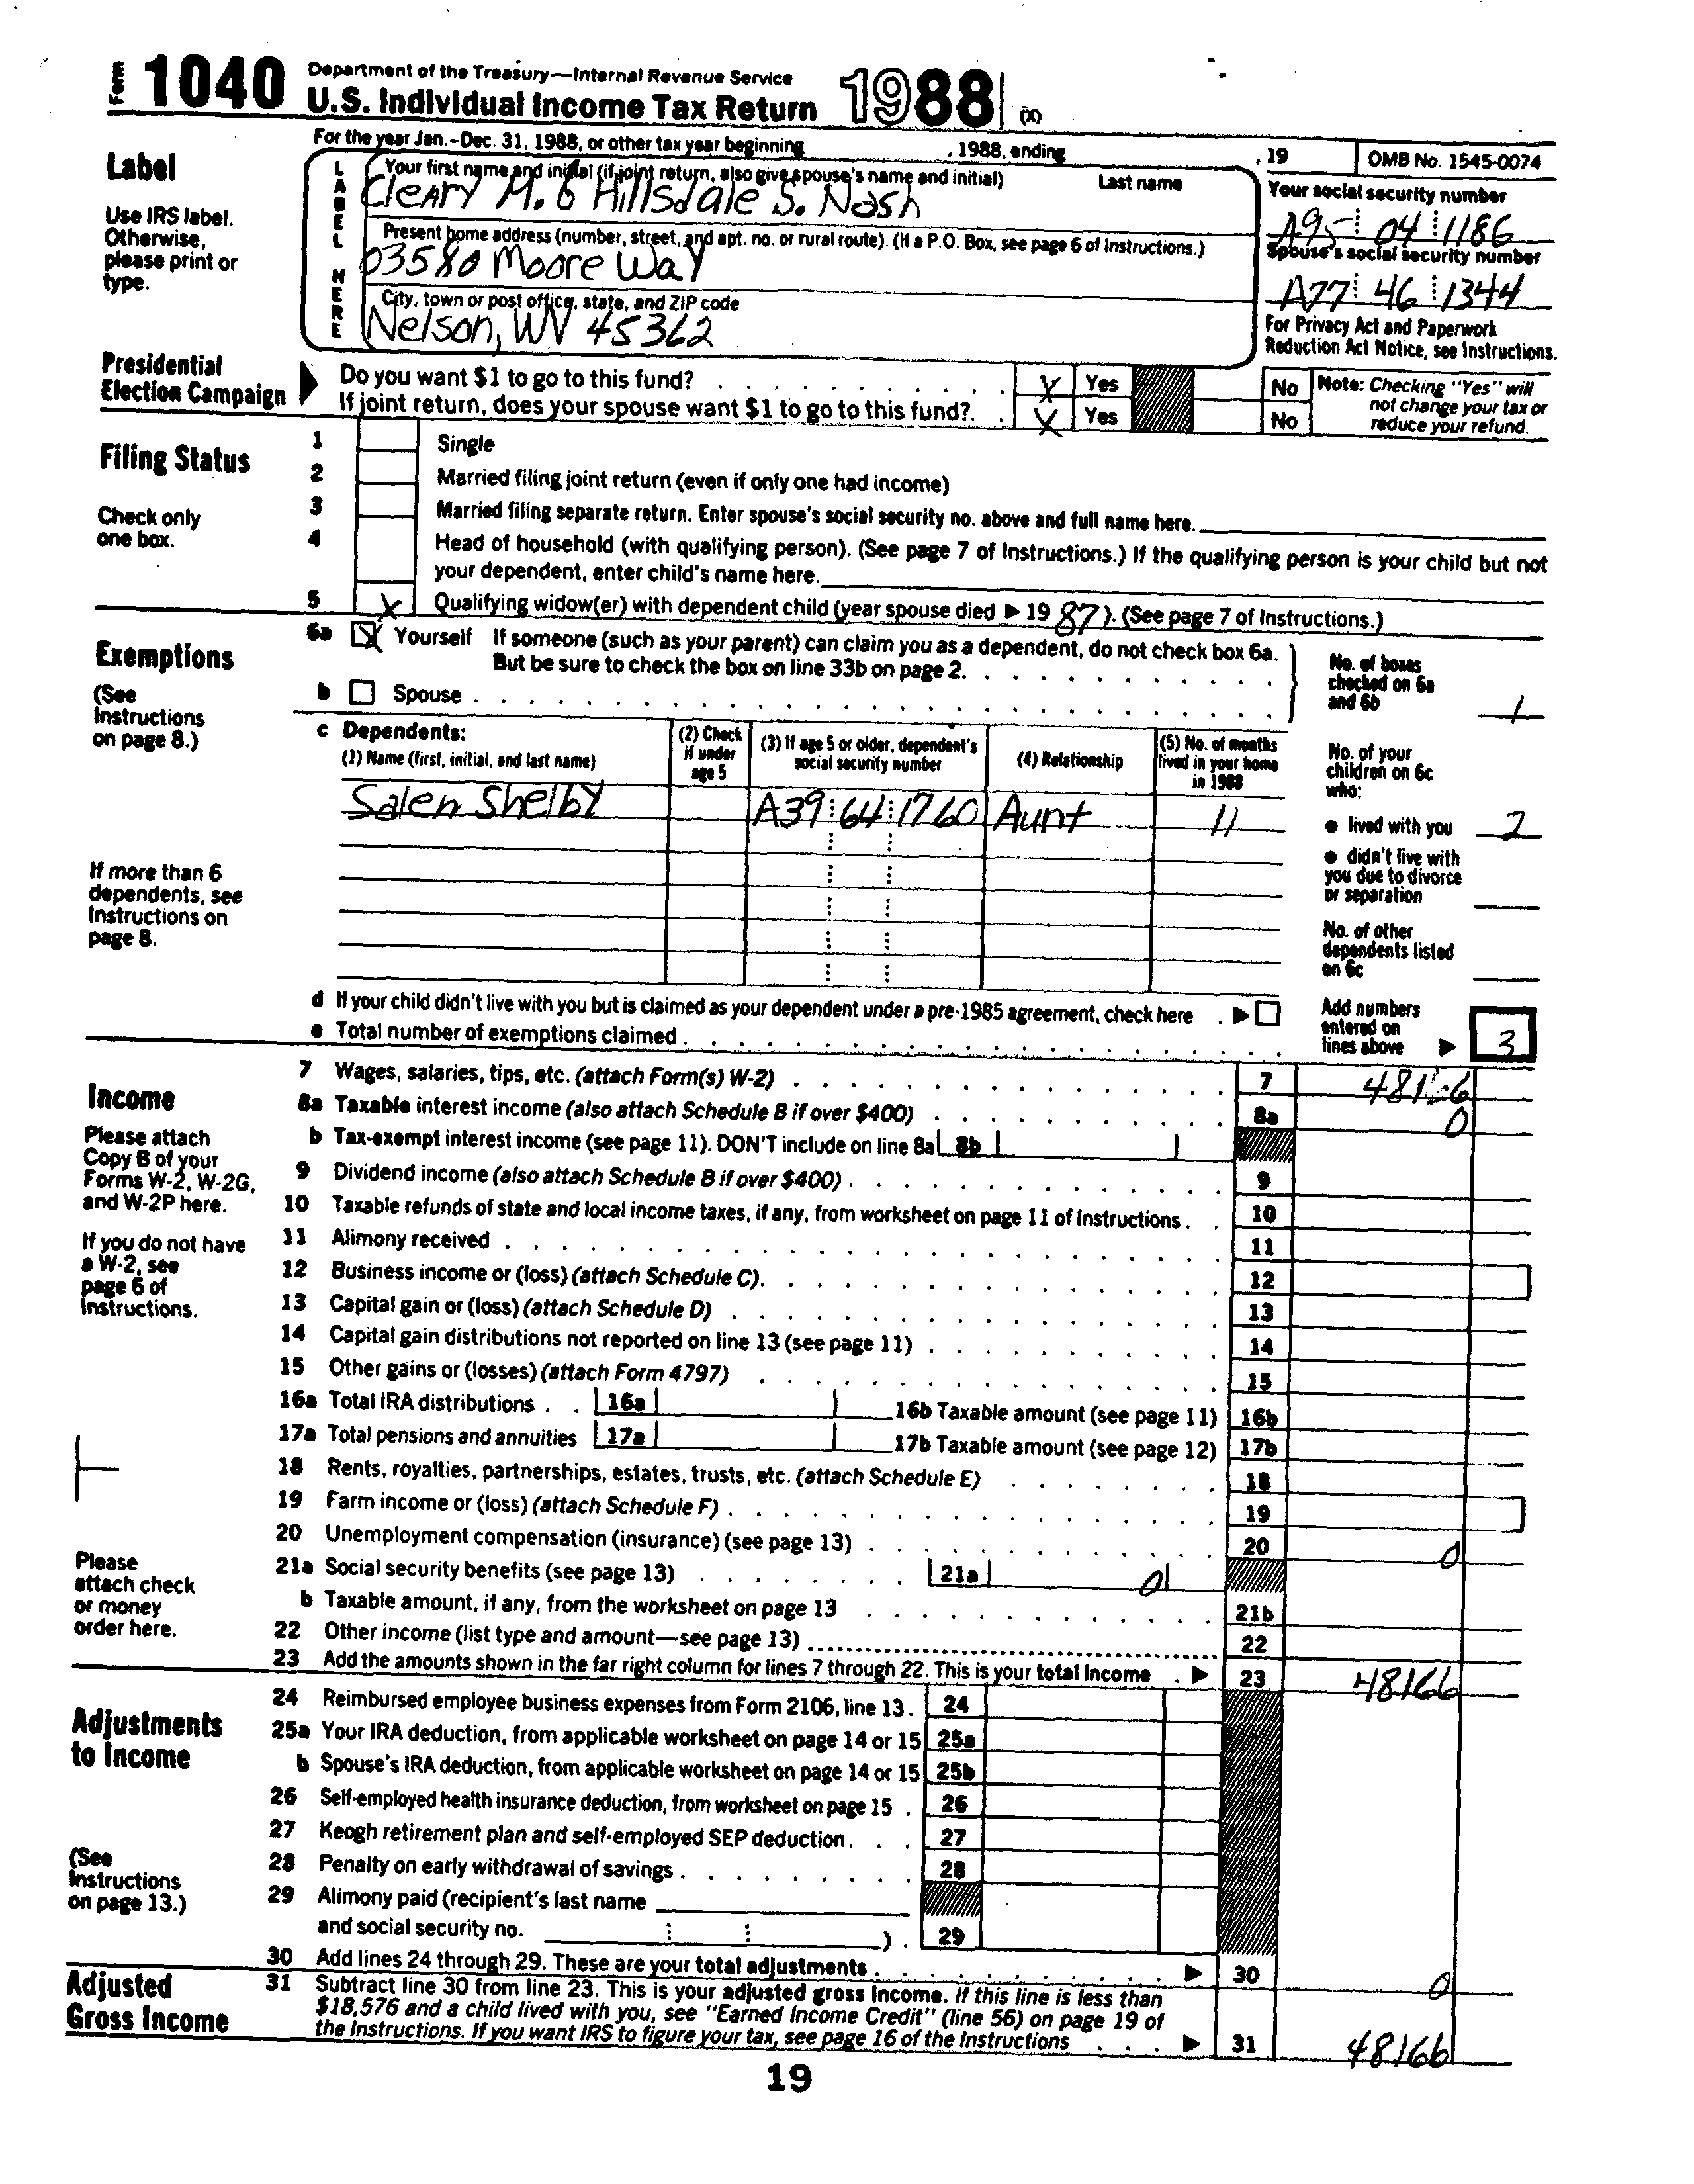 Form 1040 Department of the Treasury—Internal Revenue Service
U.S. Individual Income Tax Return 1988 (X)
For the year Jan.–Dec. 31, 1988, or other tax year beginning , 1988, ending , 19 OMB No. 1545-0074
Label
Use IRS label.
Otherwise,
please print or
type.
LABEL HERE
Your first name and initial (if joint return, also give spouse's name and initial) Last name
Cleary M. & Hillsdale S. Nash
Your social security number
A95 04 1186
Present home address (number, street, and apt. no. or rural route). (If a P.O. Box, see page 6 of Instructions.)
03580 Moore Way
Spouse's social security number
A77 46 1344
City, town or post office, state, and ZIP code
Nelson, WV 45362
For Privacy Act and Paperwork
Reduction Act Notice, see Instructions.
Presidential
Election Campaign
Do you want $1 to go to this fund? X Yes No
If joint return, does your spouse want $1 to go to this fund? X Yes No
Note: Checking "Yes" will
not change your tax or
reduce your refund.
Filing Status
Check only
one box.
1 Single
2 Married filing joint return (even if only one had income)
3 Married filing separate return. Enter spouse's social security no. above and full name here.
4 Head of household (with qualifying person). (See page 7 of Instructions.) If the qualifying person is your child but not
your dependent, enter child's name here.
5 X Qualifying widow(er) with dependent child (year spouse died ▶ 19 87). (See page 7 of Instructions.)
Exemptions
(See
Instructions
on page 8.)
6a X Yourself If someone (such as your parent) can claim you as a dependent, do not check box 6a.
But be sure to check the box on line 33b on page 2.
b Spouse
No. of boxes
checked on 6a
and 6b 1
c Dependents:
(1) Name (first, initial, and last name)
(2) Check
if under
age 5
(3) If age 5 or older, dependent's
social security number
(4) Relationship
(5) No. of months
lived in your home
in 1988
Salen Shelby A39 64 1760 Aunt 11
No. of your
children on 6c
who:
● lived with you 2
● didn't live with
you due to divorce
or separation
No. of other
dependents listed
on 6c
If more than 6
dependents, see
Instructions on
page 8.
d If your child didn't live with you but is claimed as your dependent under a pre-1985 agreement, check here ▶
e Total number of exemptions claimed
Add numbers
entered on
lines above ▶ 3
Income
Please attach
Copy B of your
Forms W-2, W-2G,
and W-2P here.
If you do not have
a W-2, see
page 6 of
Instructions.
Please
attach check
or money
order here.
7 Wages, salaries, tips, etc. (attach Form(s) W-2) 7 48166
8a Taxable interest income (also attach Schedule B if over $400) 8a 0
b Tax-exempt interest income (see page 11). DON'T include on line 8a 8b
9 Dividend income (also attach Schedule B if over $400) 9
10 Taxable refunds of state and local income taxes, if any, from worksheet on page 11 of Instructions 10
11 Alimony received 11
12 Business income or (loss) (attach Schedule C) 12
13 Capital gain or (loss) (attach Schedule D) 13
14 Capital gain distributions not reported on line 13 (see page 11) 14
15 Other gains or (losses) (attach Form 4797) 15
16a Total IRA distributions 16a 16b Taxable amount (see page 11) 16b
17a Total pensions and annuities 17a 17b Taxable amount (see page 12) 17b
18 Rents, royalties, partnerships, estates, trusts, etc. (attach Schedule E) 18
19 Farm income or (loss) (attach Schedule F) 19
20 Unemployment compensation (insurance) (see page 13) 20 0
21a Social security benefits (see page 13) 21a 0
b Taxable amount, if any, from the worksheet on page 13 21b
22 Other income (list type and amount—see page 13) 22
23 Add the amounts shown in the far right column for lines 7 through 22. This is your total income ▶ 23 48166
Adjustments
to Income
(See
Instructions
on page 13.)
24 Reimbursed employee business expenses from Form 2106, line 13 24
25a Your IRA deduction, from applicable worksheet on page 14 or 15 25a
b Spouse's IRA deduction, from applicable worksheet on page 14 or 15 25b
26 Self-employed health insurance deduction, from worksheet on page 15 26
27 Keogh retirement plan and self-employed SEP deduction 27
28 Penalty on early withdrawal of savings 28
29 Alimony paid (recipient's last name
and social security no. ) 29
30 Add lines 24 through 29. These are your total adjustments ▶ 30 0
Adjusted
Gross Income
31 Subtract line 30 from line 23. This is your adjusted gross income. If this line is less than
$18,576 and a child lived with you, see "Earned Income Credit" (line 56) on page 19 of
the Instructions. If you want IRS to figure your tax, see page 16 of the Instructions ▶ 31 48166
19